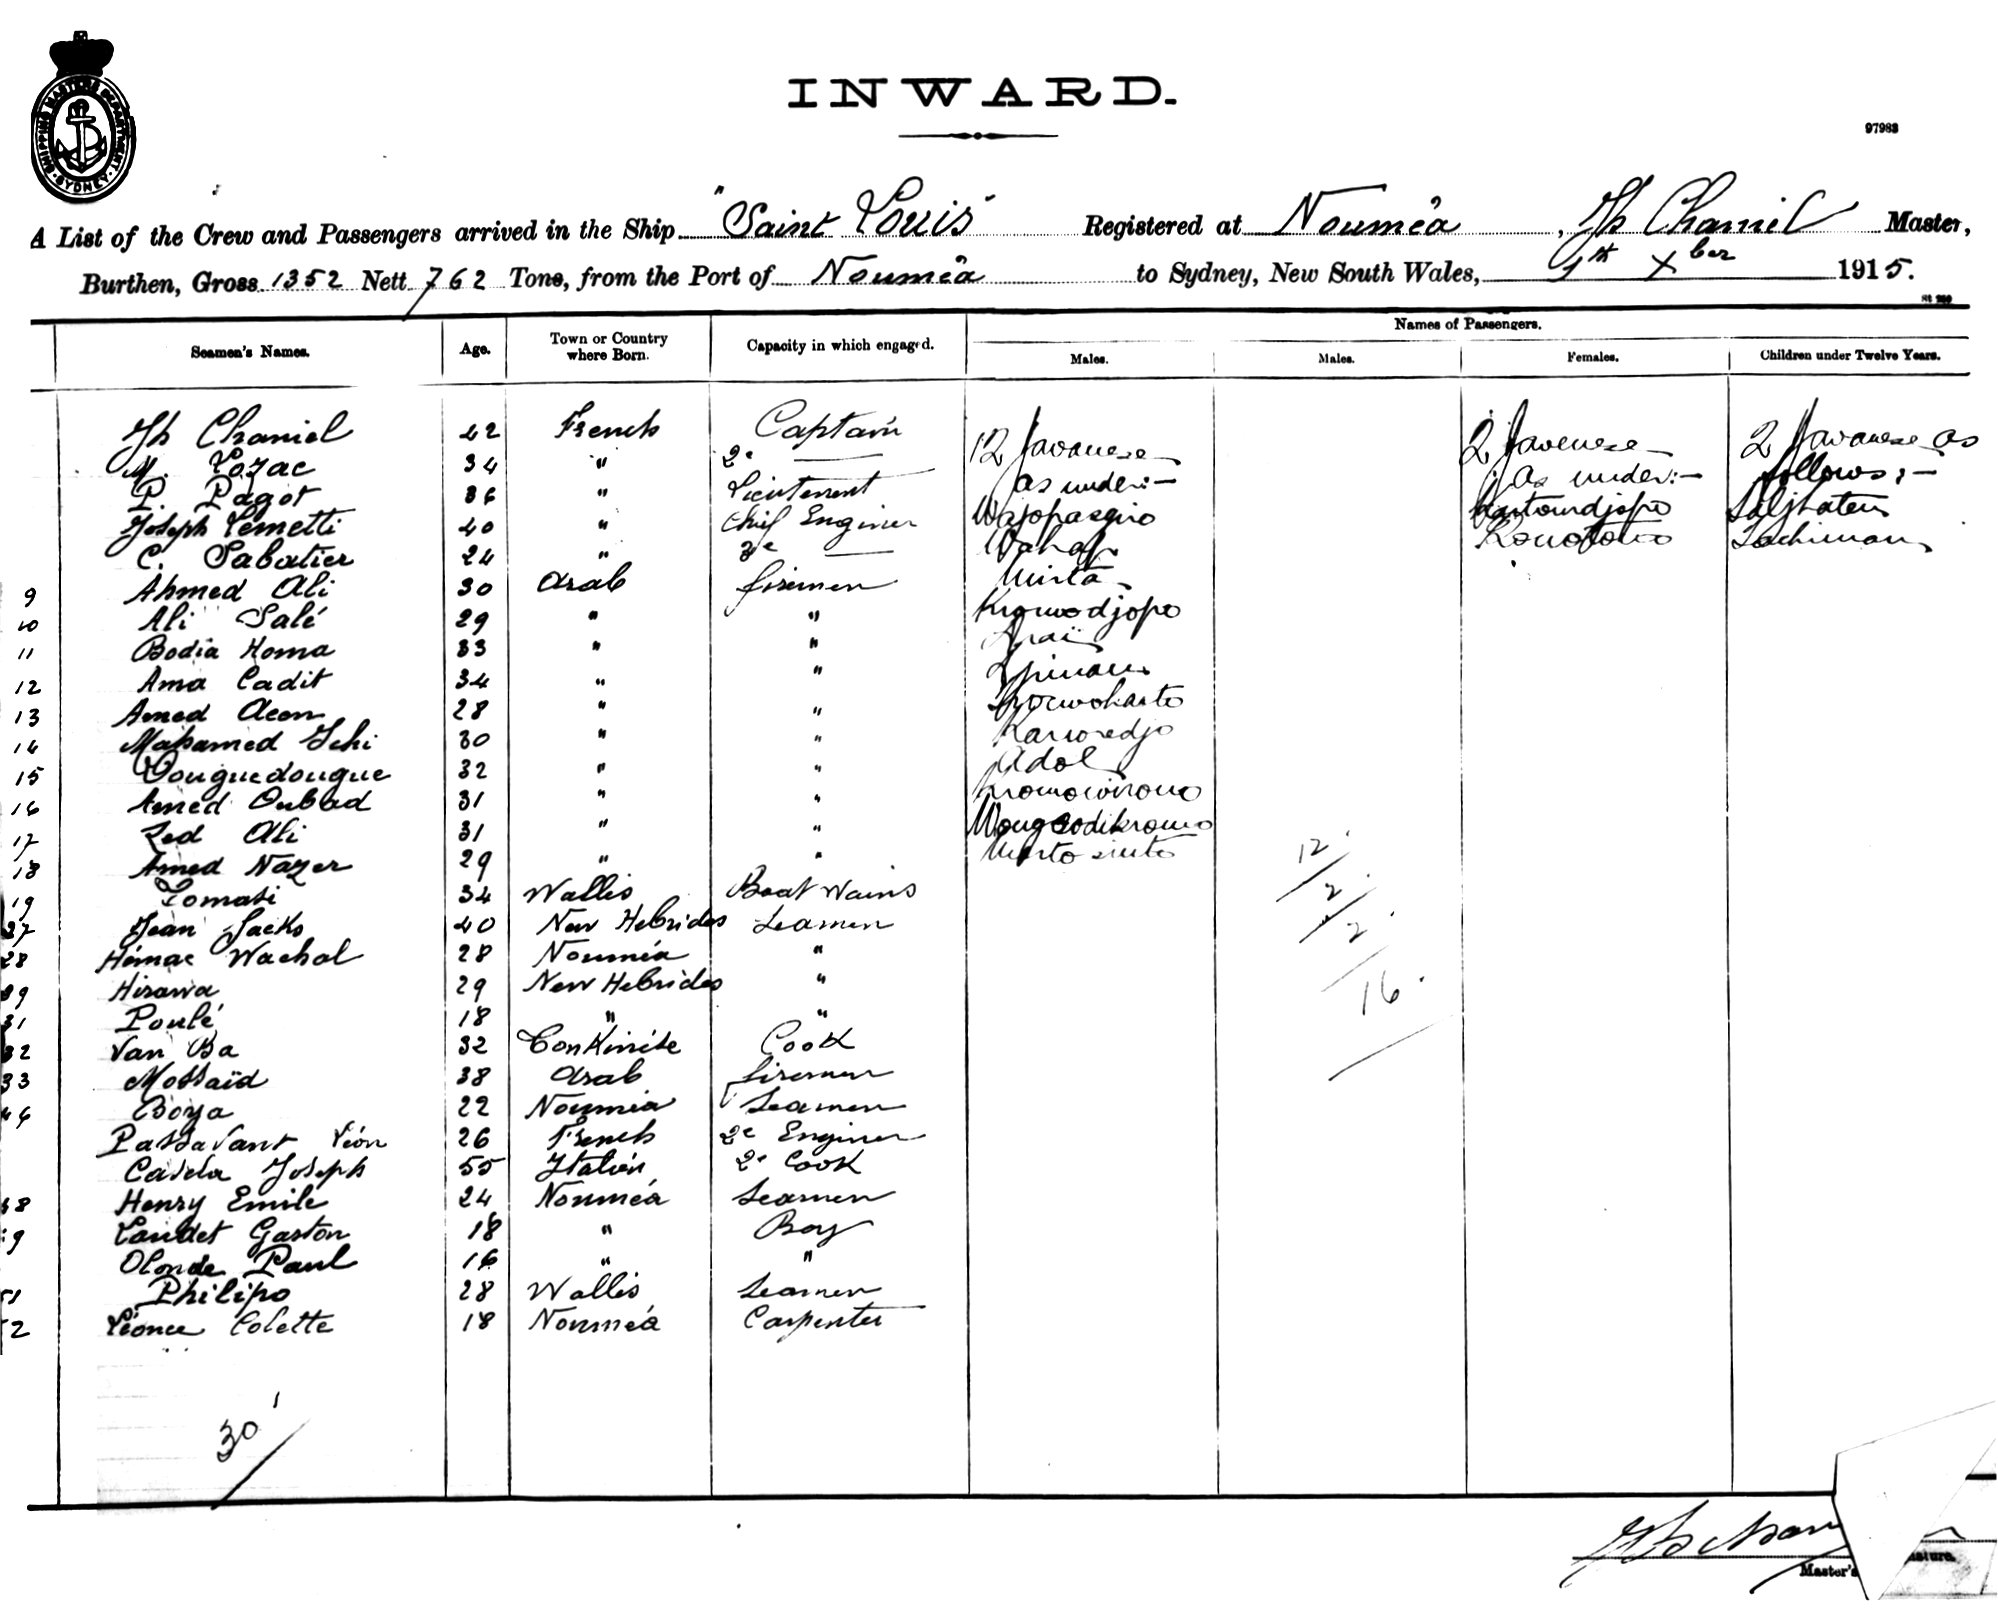 SHIPPING MASTERS DEPARTMENT SYDNEY
INWARD.
97983
A List of the Crew and Passengers arrived in the Ship "Saint Louis" Registered at Nouméa, Jh Chaniel Master,
Burthen, Gross 1352 Nett 762 Tons, from the Port of Nouméa to Sydney, New South Wales, 1th Xber 1915.
Seamen's Names. Age. Town or Country where Born. Capacity in which engaged. Names of Passengers.
Males. Males. Females. Children under Twelve Years.
Jh Chaniel 42 French Captain 12 Javanese 2 Javenese 2 Javanese as
Lozac 34 " 2e — as under:— as under:— follows:—
P. Pagot 36 " Lieutenent
Joseph Lemetti 40 " Chief Enginer
C. Sabatier 24 " 3e —
9 Ahmed Ali 30 Arab firemen
10 Ali Salé 29 " " Kromodjopo
11 Bodia Homa 33 " "
12 Ama Cadit 34 " "
13 Amed Acen 28 " "
14 Mahamed 30 " "
15 Douguedougue 32 " " Adol
16 Amed Oubad 31 " " Kromowirono
17 Zed Ali 31 " "
18 Amed Nazer 29 " "
19 Tomasi 34 Wallis Boat Wains
27 Jean Jacks 40 New Hebrides Seamen
28 Hémac Wachol 28 Nouméa "
29 Hisawa 29 New Hebrides "
31 Poulé 18 " "
32 Van Ba 32 Tonkinése Cook
33 Mossaïd 38 Arab firemen
46 Boya 22 Nouméa Seamen
Passavant Léon 26 French 2e Enginer
Casela Joseph 55 Italien 2e Cook
48 Henry Emile 24 Nouméa Seamen
Landet Gaston 18 " Boy
Olonde Paul 16 " "
51 Philipo 28 Wallis Seamen
52 Léonce Colette 18 Nouméa Carpenter
12
2
2
16
30
Master's